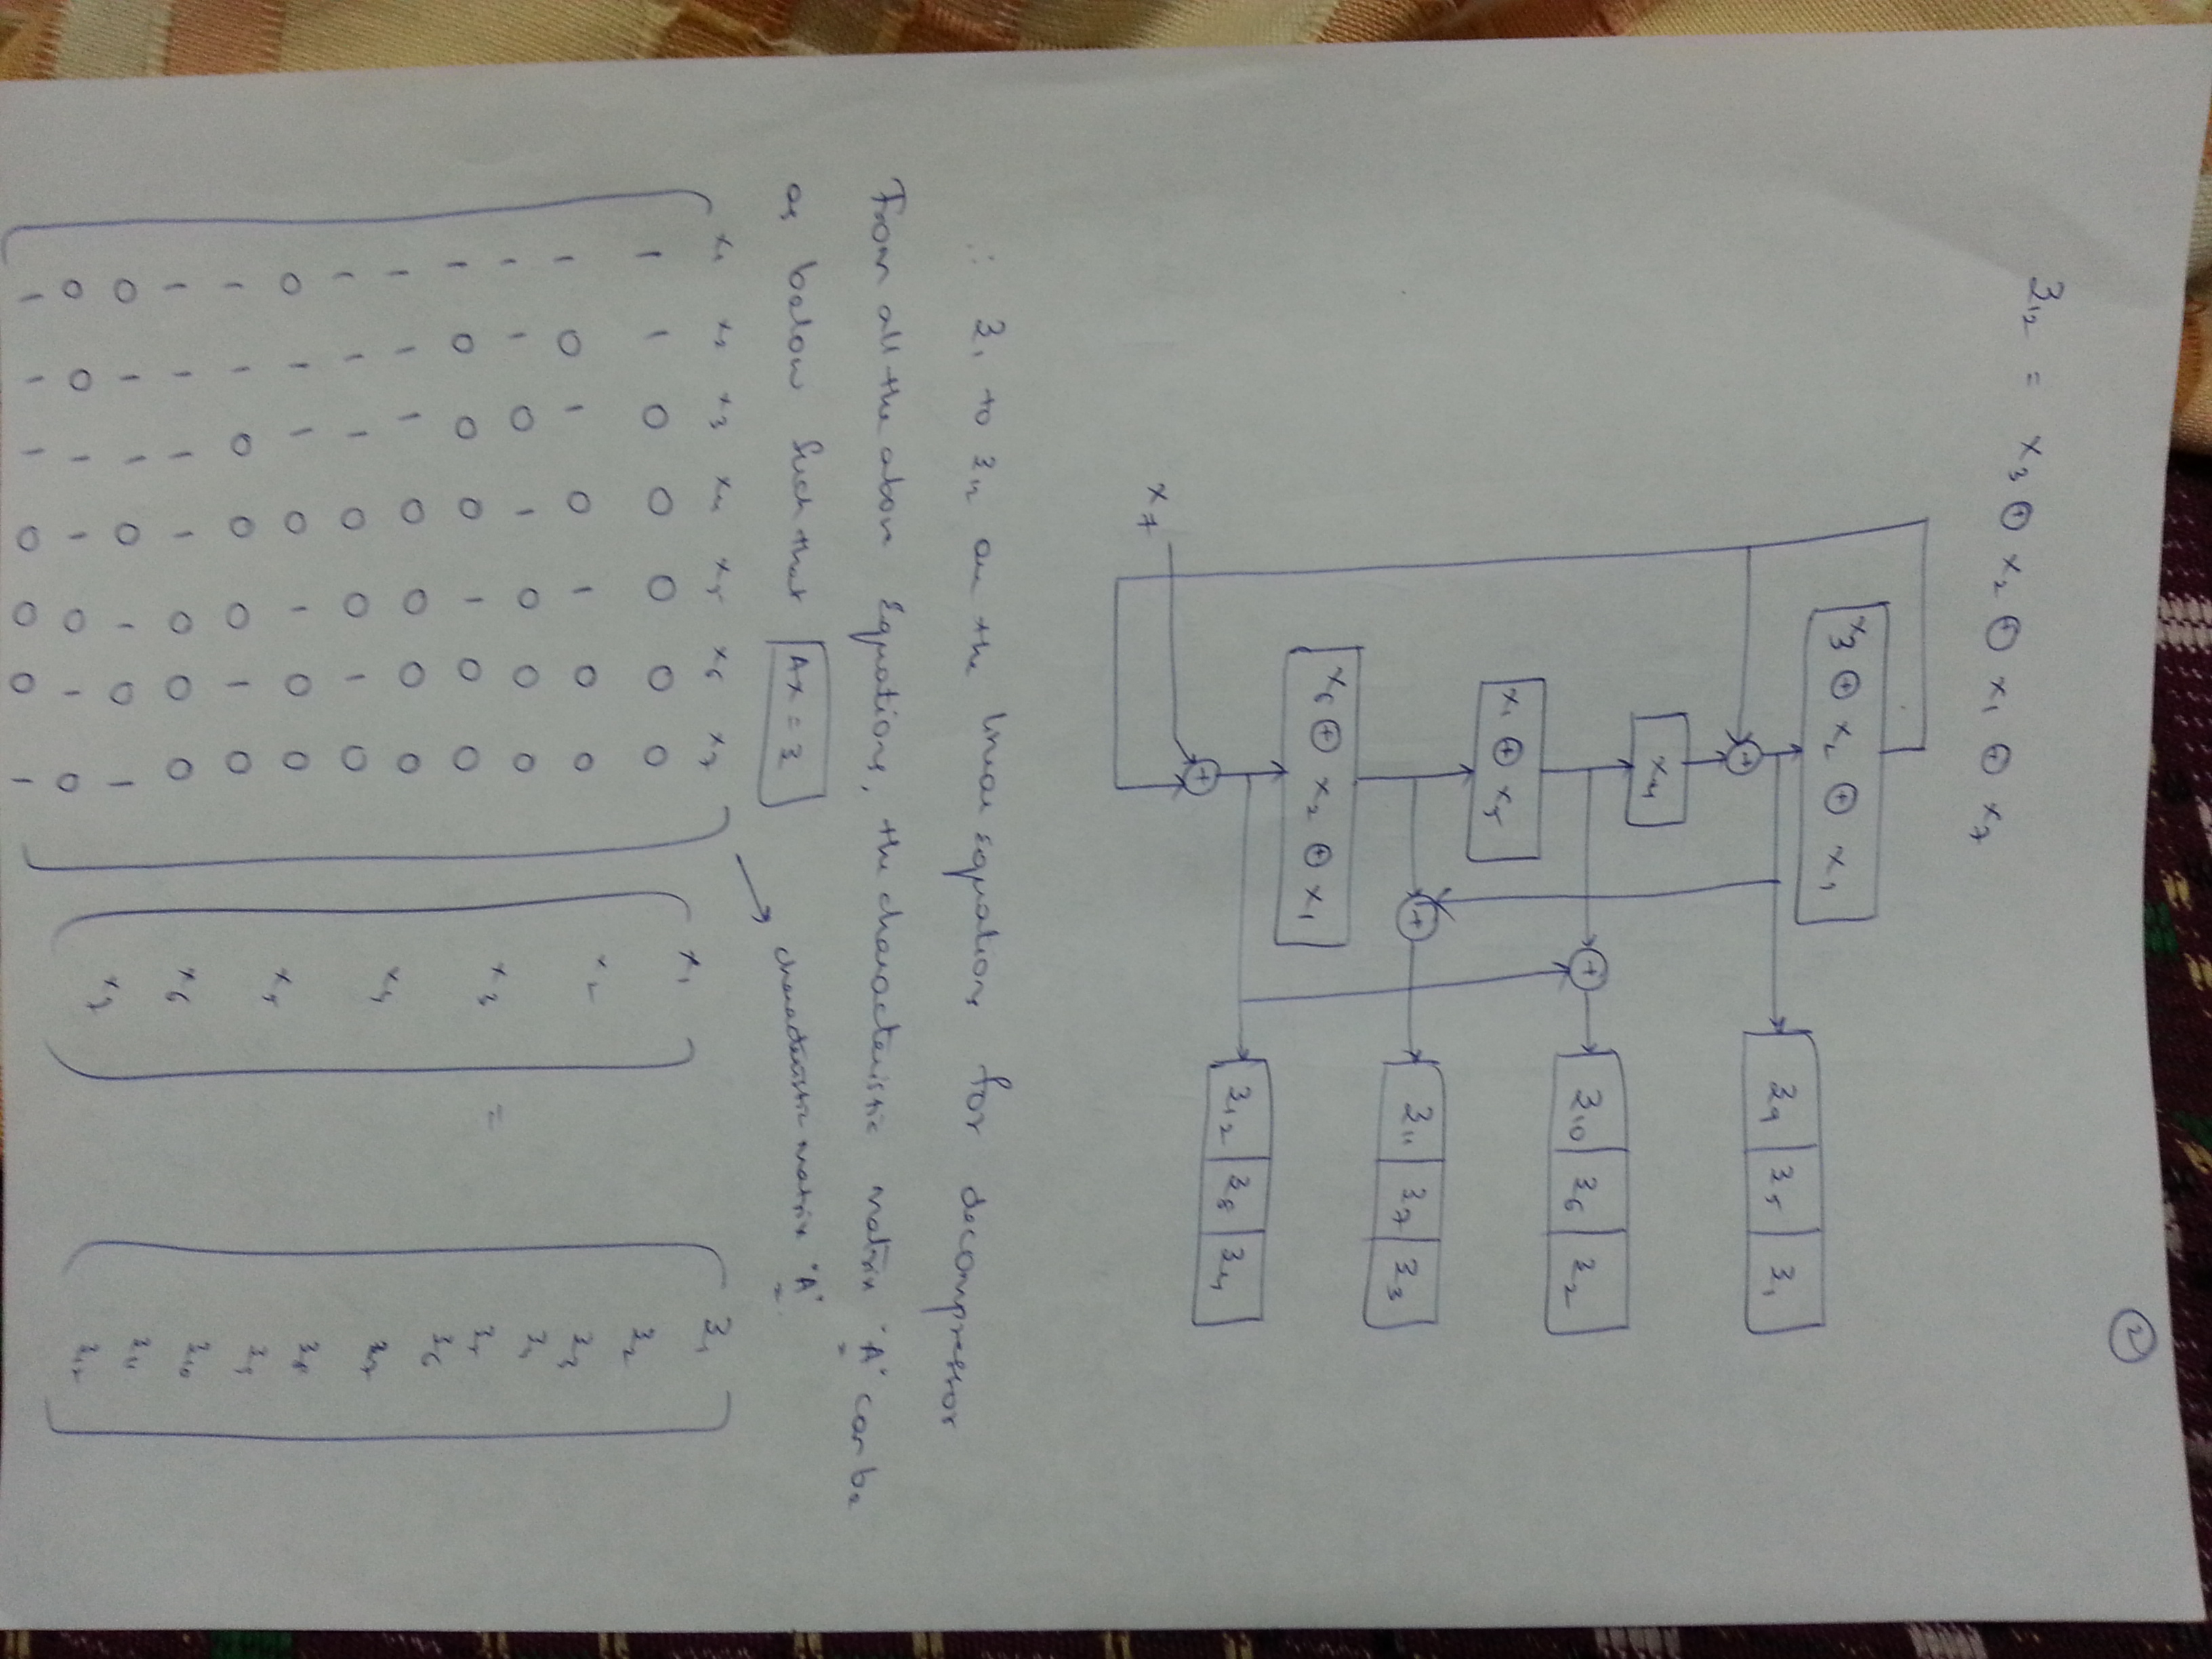 2
z12 = x3 ⊕ x2 ⊕ x1 ⊕ x7
x3 ⊕ x2 ⊕ x1
+
z9 z5 z1
x4
+
z10 z6 z2
x1 ⊕ x5
+
z11 z7 z3
x6 ⊕ x2 ⊕ x1
z12 z8 z4
+
x7
∴ z1 to z12 are the linear Equations for decompressor
From all the above Equations, the characteristic matrix "A" can be
as below such that AX = Z characteristic matrix "A"
x1 x2 x3 x4 x5 x6 x7
1 1 0 0 0 0 0
1 0 1 0 1 0 0
1 1 0 1 0 0 0
1 0 0 0 1 0 0
1 1 1 0 0 0 0
1 1 1 0 0 1 0
0 1 1 0 1 0 0
1 1 0 0 0 1 0
1 1 1 1 0 0 0
0 1 1 0 1 0 1
0 0 1 1 0 1 0
1 1 1 0 0 0 1
x1
x2
x3
x4
x5
x6
x7
=
z1
z2
z3
z4
z5
z6
z7
z8
z9
z10
z11
z12